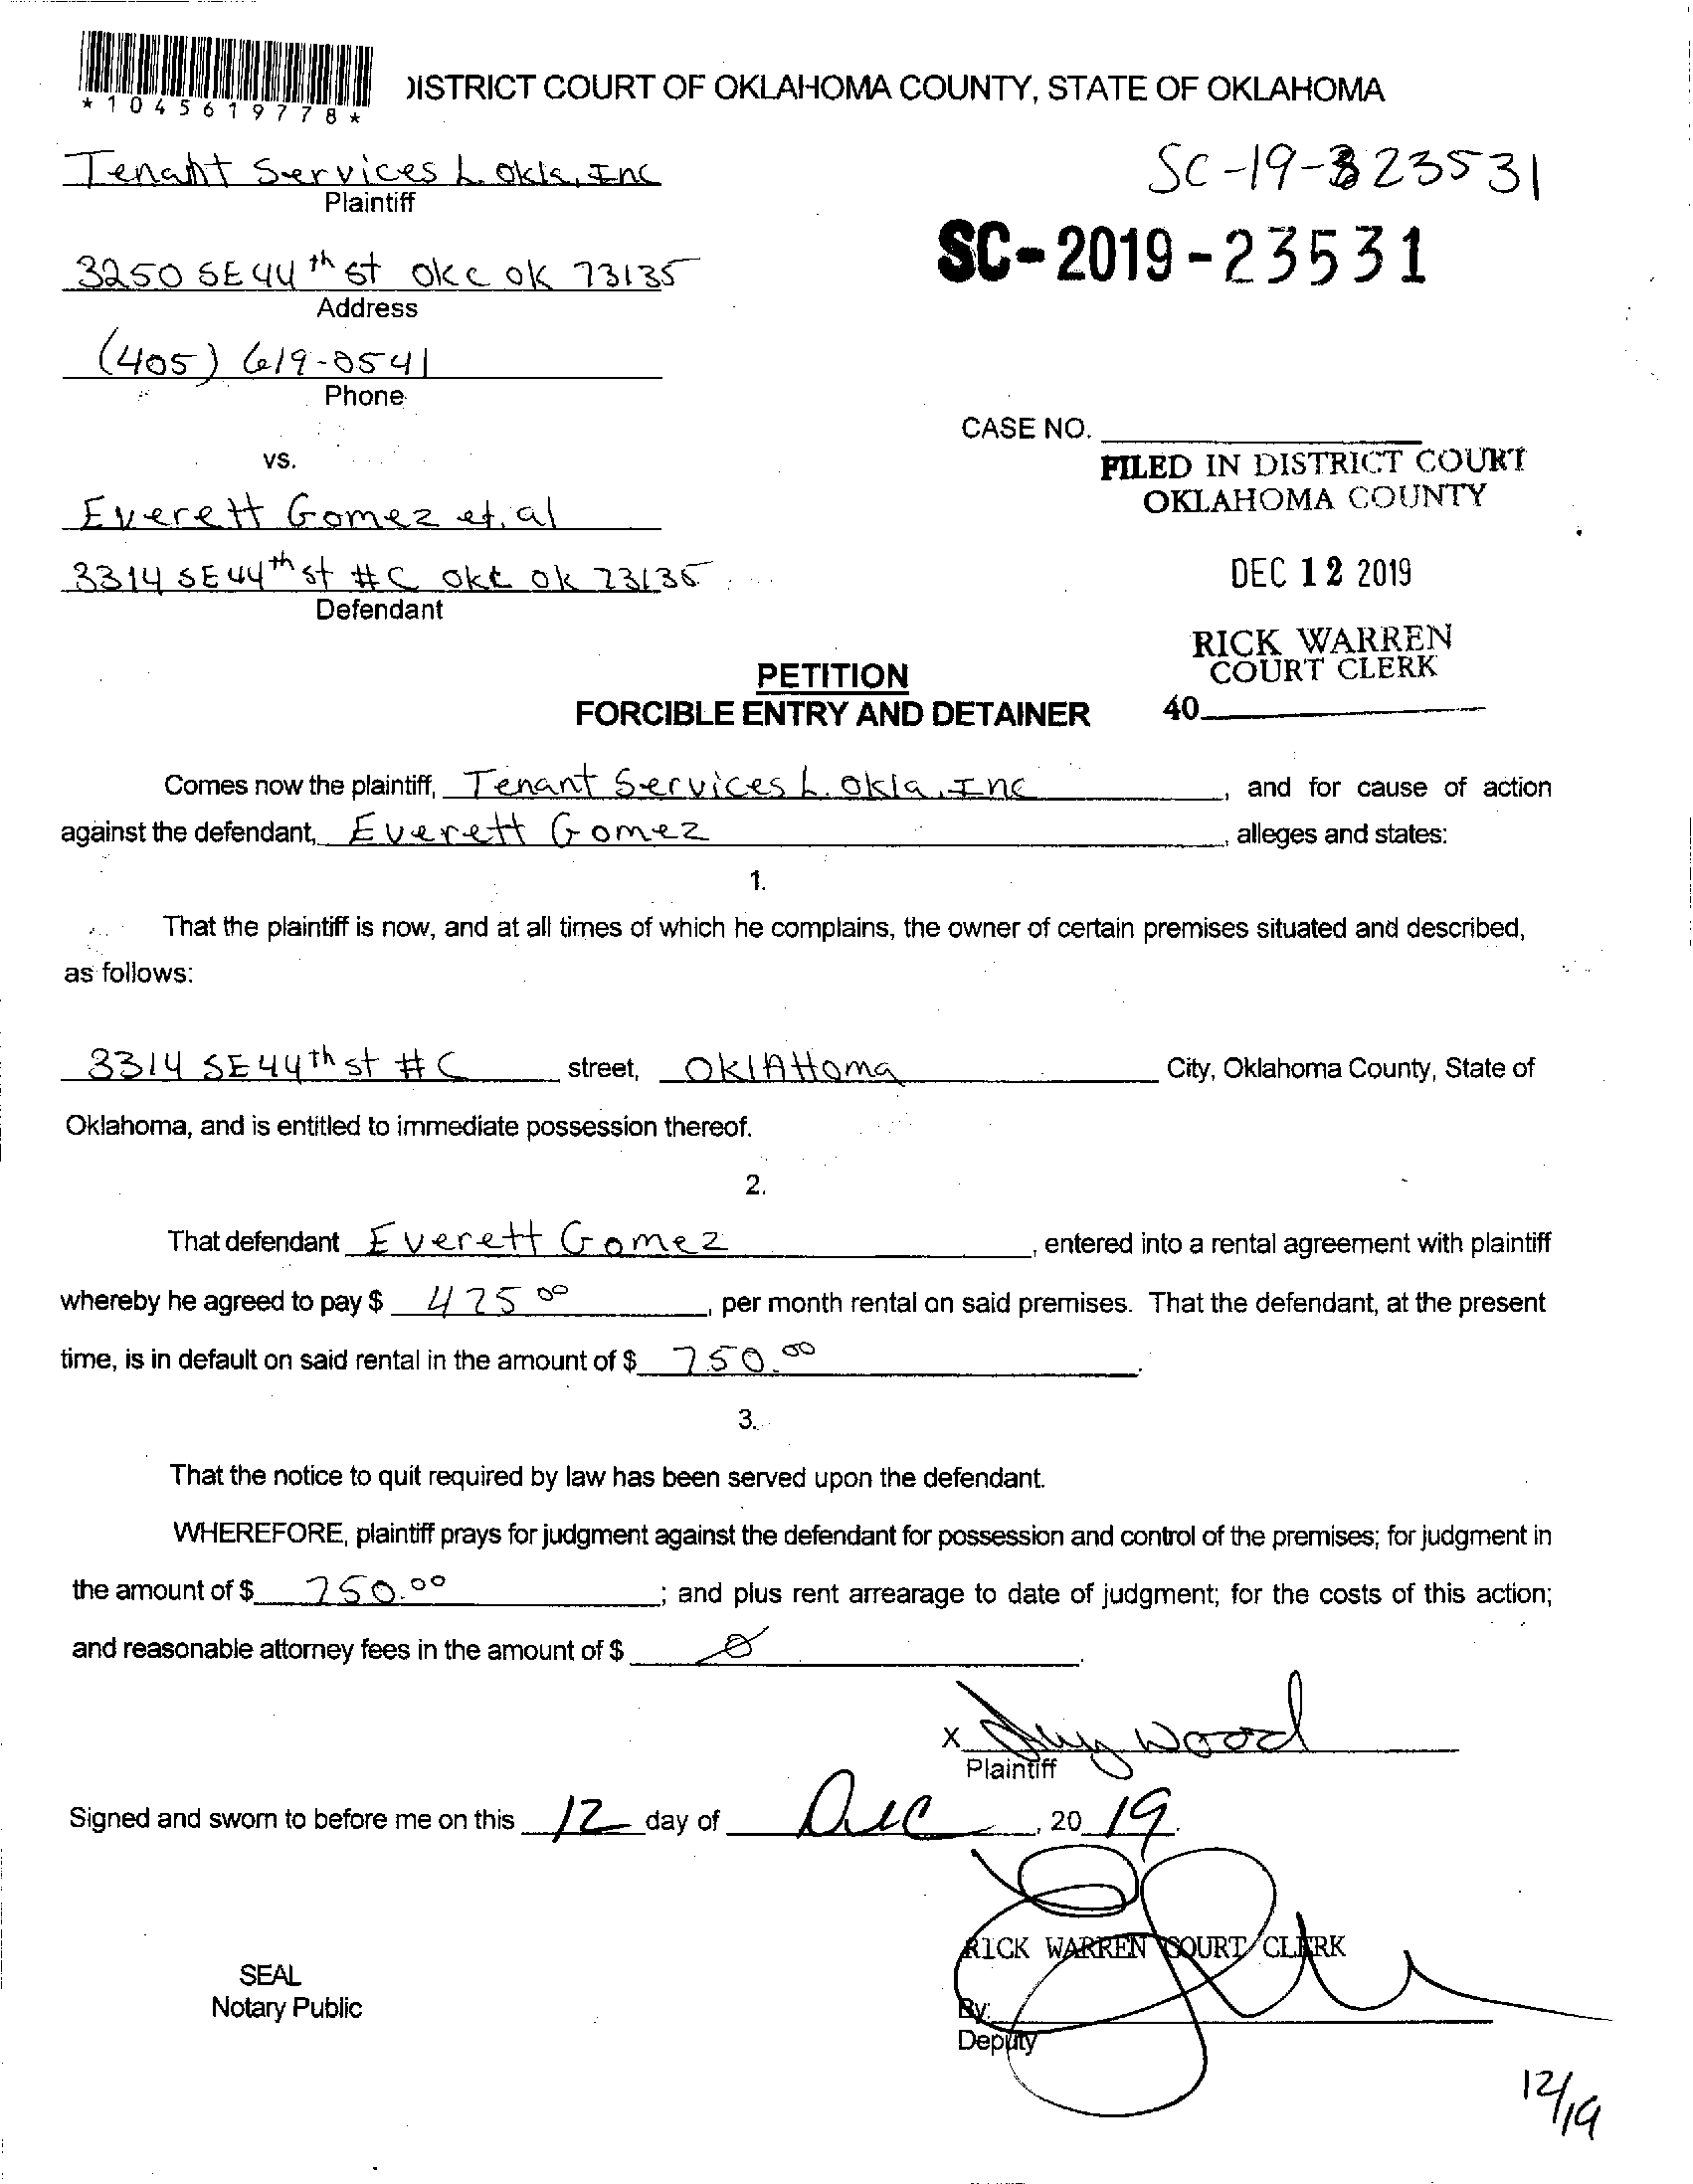 *1045619778*
DISTRICT COURT OF OKLAHOMA COUNTY, STATE OF OKLAHOMA
Tenant Services L. Okla, Inc
Plaintiff
SC-19-23531
SC-2019-23531
3250 SE 44th st okc ok 73135
Address
(405) 619-0541
Phone
CASE NO.
vs.
FILED IN DISTRICT COURT
OKLAHOMA COUNTY
Everett Gomez et. al
3314 SE 44th st #C okc ok 73135
Defendant
DEC 12 2019
RICK WARREN
COURT CLERK
40
PETITION
FORCIBLE ENTRY AND DETAINER
Comes now the plaintiff, Tenant Services L. Okla, Inc, and for cause of action
against the defendant, Everett Gomez, alleges and states:
1.
That the plaintiff is now, and at all times of which he complains, the owner of certain premises situated and described,
as follows:
3314 SE 44th st #C street, OklAHoma City, Oklahoma County, State of
Oklahoma, and is entitled to immediate possession thereof.
2.
That defendant Everett Gomez, entered into a rental agreement with plaintiff
whereby he agreed to pay $ 475 00, per month rental on said premises. That the defendant, at the present
time, is in default on said rental in the amount of $ 750.00.
3.
That the notice to quit required by law has been served upon the defendant.
WHEREFORE, plaintiff prays for judgment against the defendant for possession and control of the premises; for judgment in
the amount of $ 750.00; and plus rent arrearage to date of judgment; for the costs of this action;
and reasonable attorney fees in the amount of $ 0.
X Wood
Plaintiff
Signed and sworn to before me on this 12 day of Dec, 20 19.
RICK WARREN COURT CLERK
SEAL
Notary Public
By:
Deputy
12/19